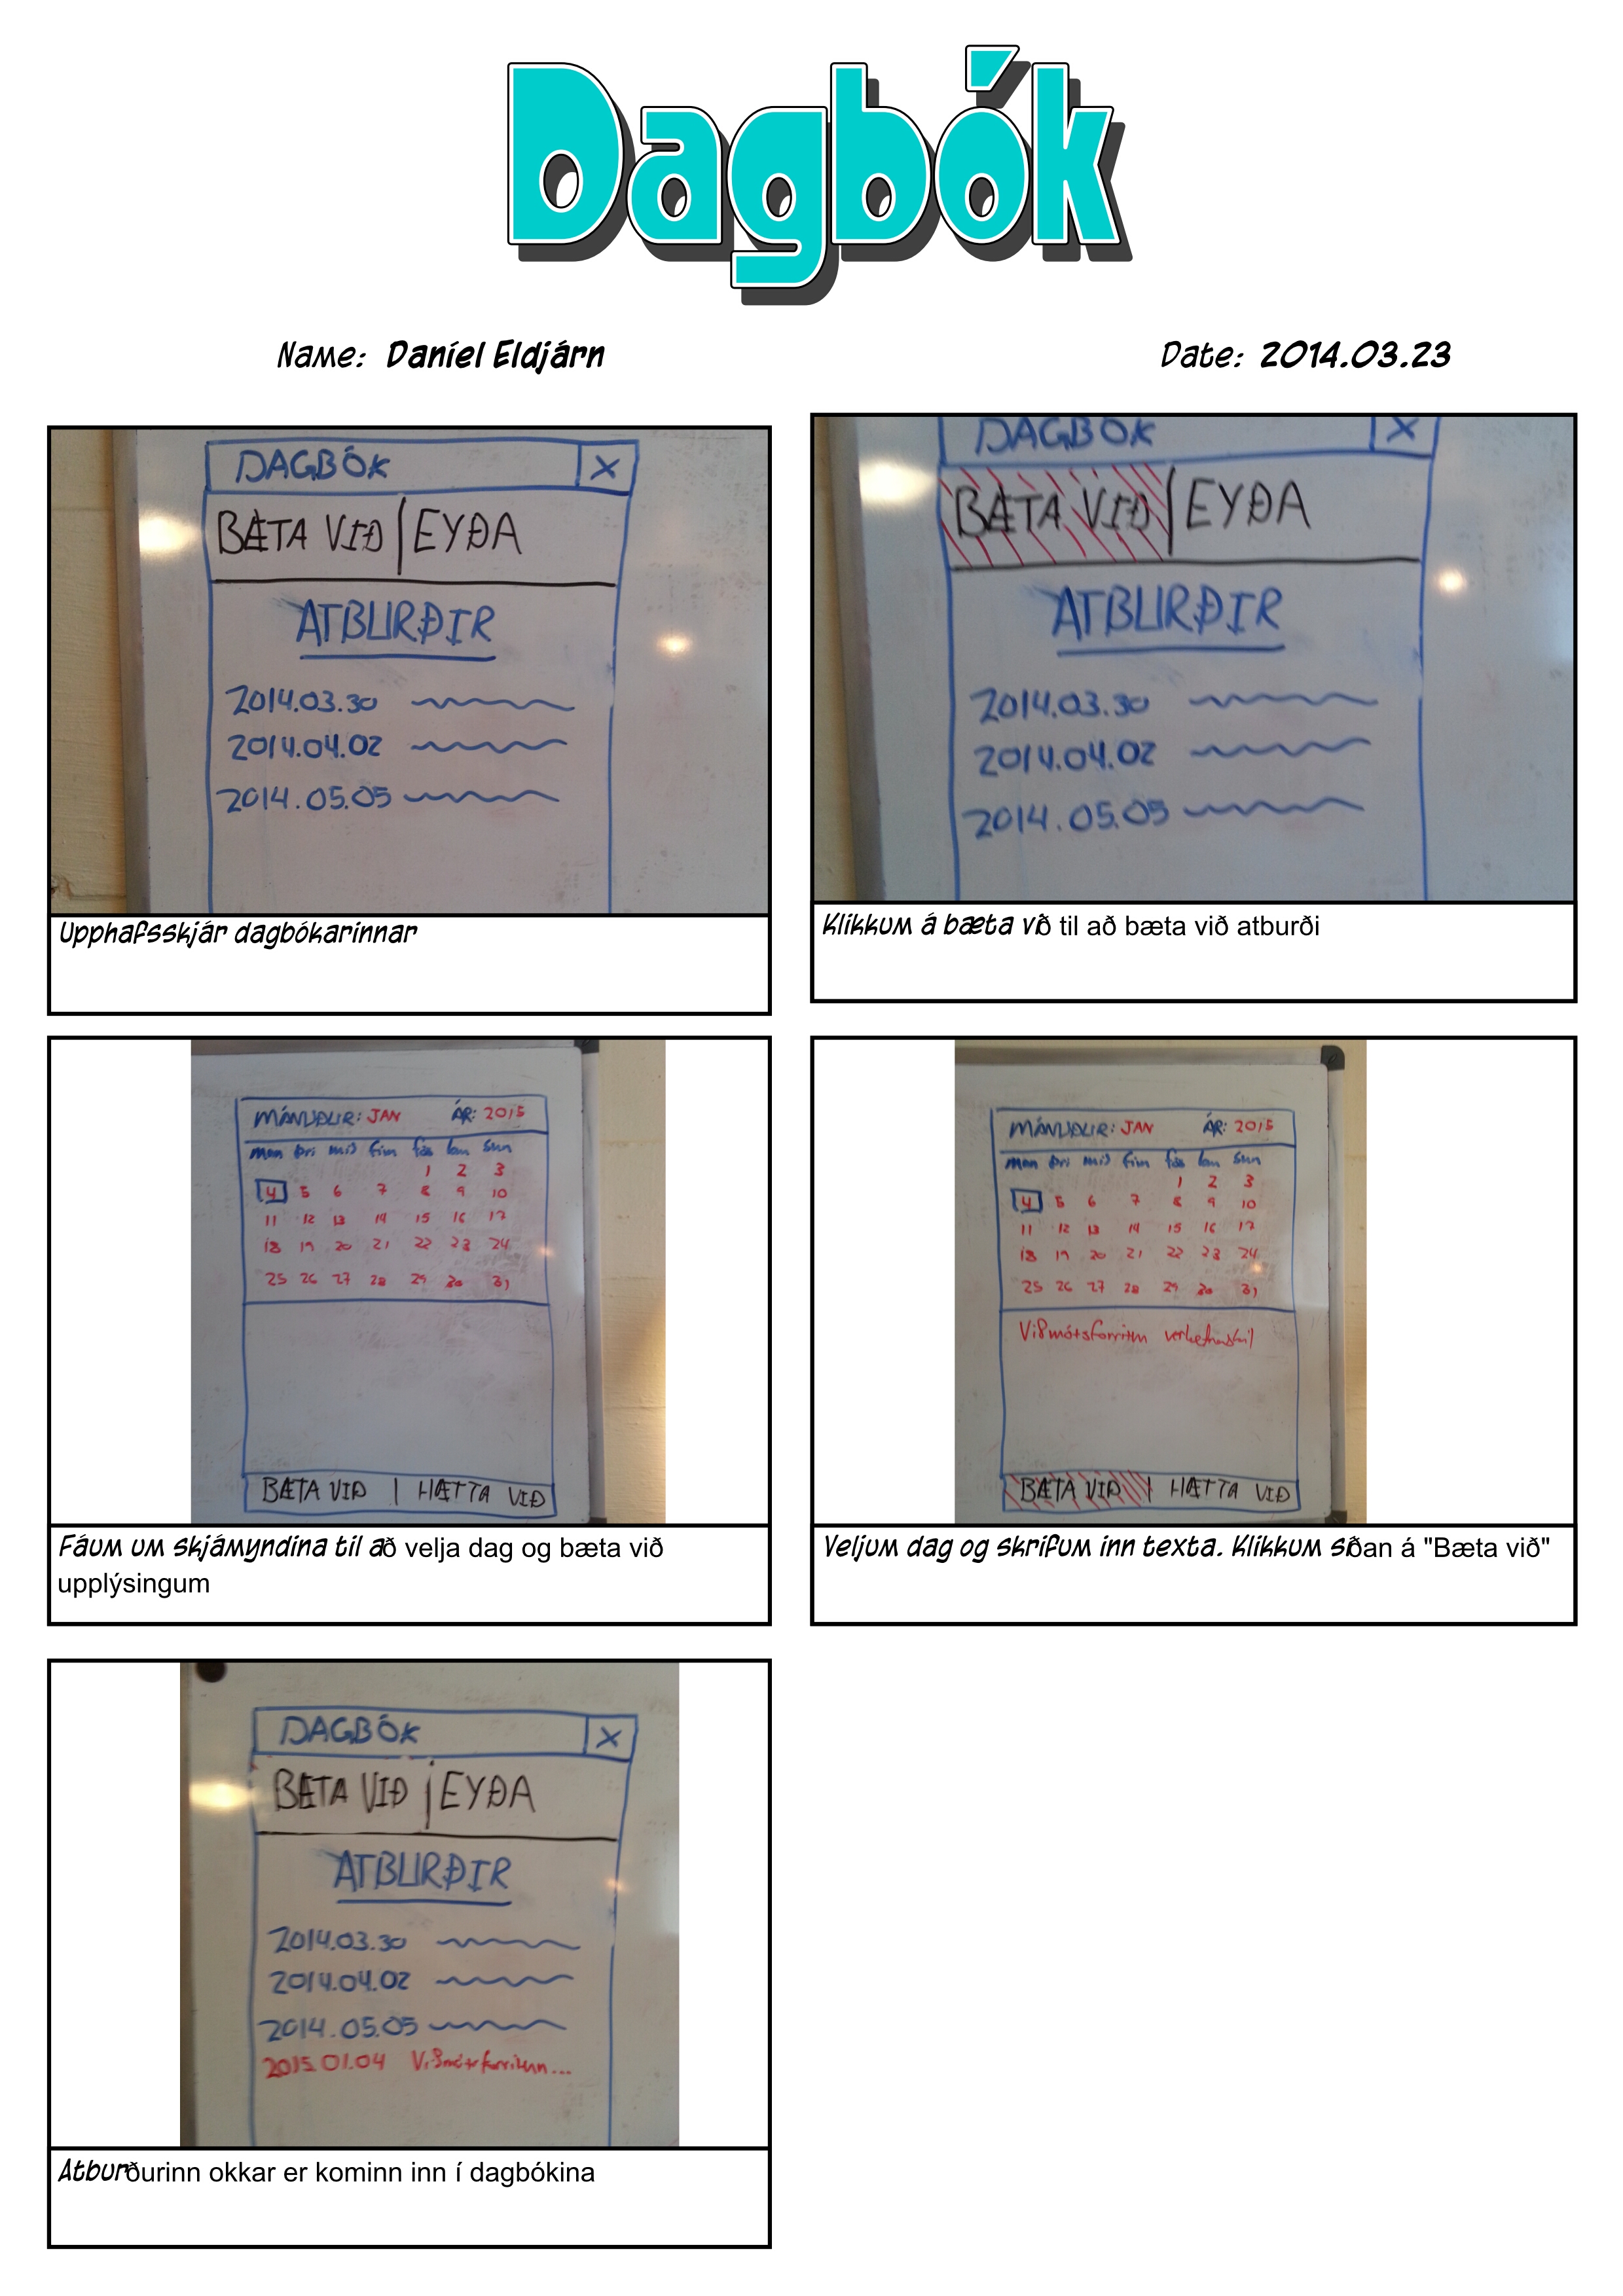 Dagbók
Name: Daníel Eldjárn Date: 2014.03.23
DAGBÓK X
BÆTA VIÐ | EYÐA
ATBURÐIR
2014.03.30
2014.04.02
2014.05.05
Upphafsskjár dagbókarinnar
DAGBÓK X
BÆTA VIÐ | EYÐA
ATBURÐIR
2014.03.30
2014.04.02
2014.05.05
Klikkum á bæta við til að bæta við atburði
MÁNUÐUR: JAN ÁR: 2015
man þri mið fim fös lau sun
1 2 3
4 5 6 7 8 9 10
11 12 13 14 15 16 17
18 19 20 21 22 23 24
25 26 27 28 29 30 31
BÆTA VIÐ | HÆTTA VIÐ
Fáum um skjámyndina til að velja dag og bæta við
upplýsingum
MÁNUÐUR: JAN ÁR: 2015
man þri mið fim fös lau sun
1 2 3
4 5 6 7 8 9 10
11 12 13 14 15 16 17
18 19 20 21 22 23 24
25 26 27 28 29 30 31
Viðmótsforritun verkefnaskil
BÆTA VIÐ | HÆTTA VIÐ
Veljum dag og skrifum inn texta. Klikkum síðan á "Bæta við"
DAGBÓK X
BÆTA VIÐ | EYÐA
ATBURÐIR
2014.03.30
2014.04.02
2014.05.05
2015.01.04 Viðmótsforritun...
Atburðurinn okkar er kominn inn í dagbókina